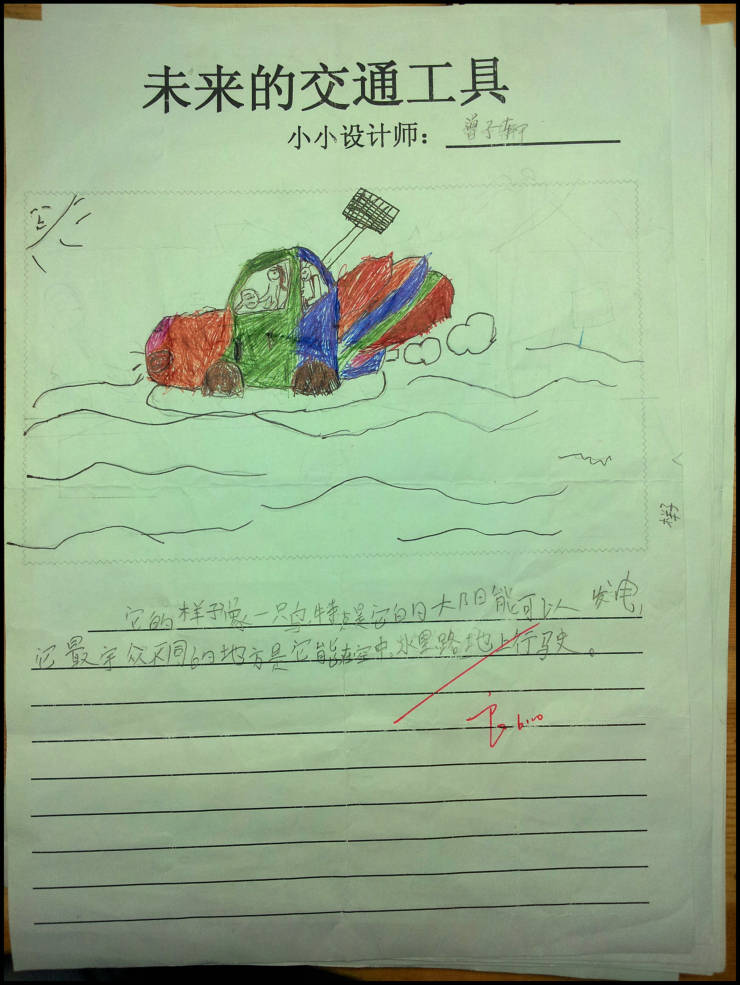 未来的交通工具
小小设计师：曾子轩
它的样子像一只鸟特点是它的太阳能可以发电,
它最与众不同的地方是它能在空中,水里路地上行驶。
良